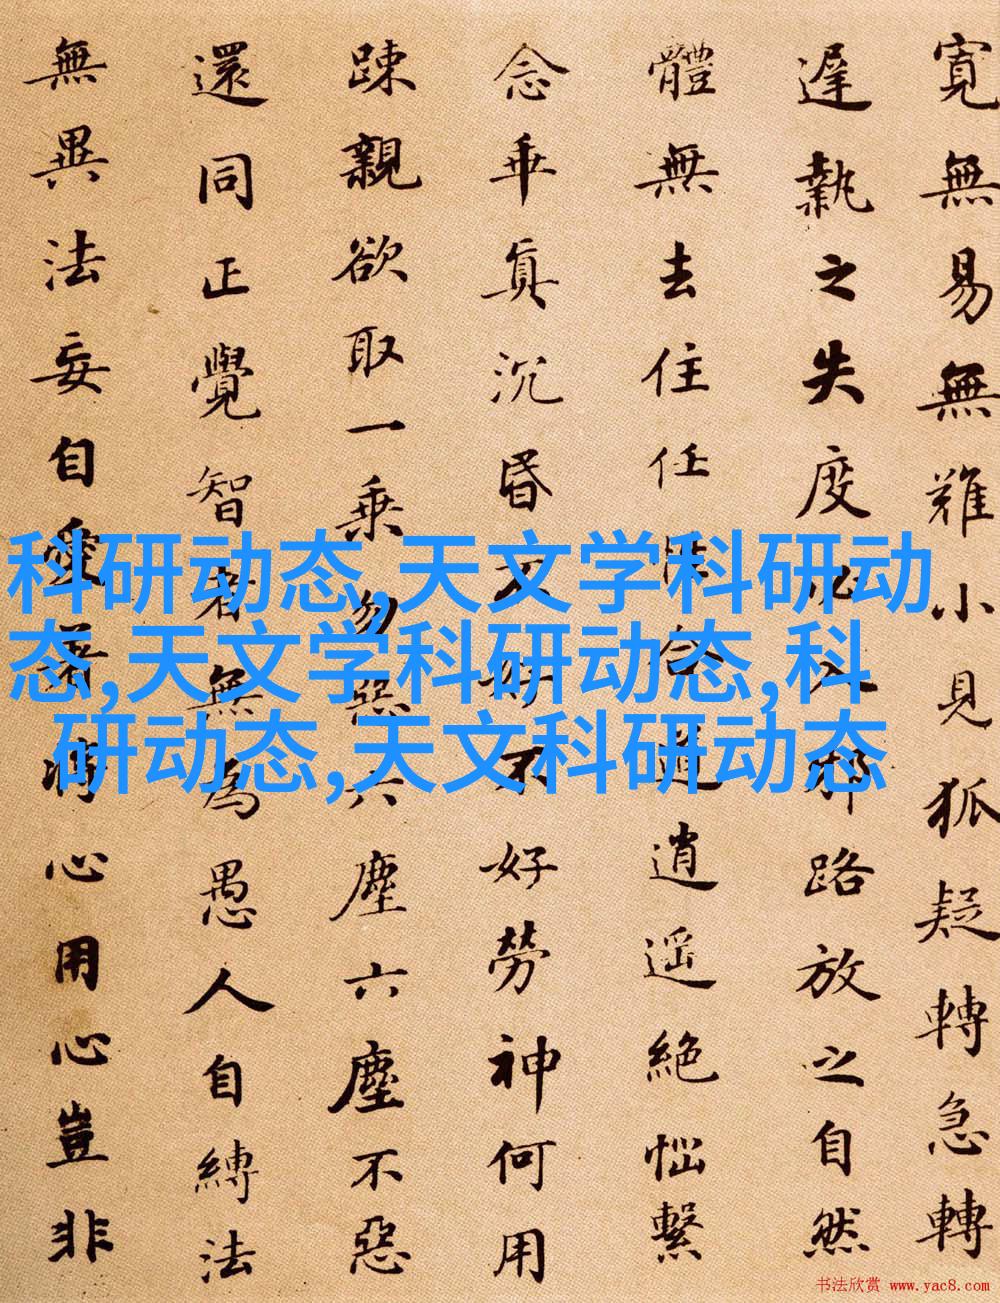 寬無易無難小見狐疑轉急轉
遲執之失度必入邪路放之自然
體無去住任性合道逍遥絶惱繫
念乖真沉昏不好不好勞神何用
踈親欲取一乗勿惡六塵六塵不惡
還同正覺智者無為愚人自縛法
無異法妄自愛著将心用心豈非
科研动态,天文学科研动
态,天文学科研动态,科
研动态,天文科研动态
书法欣赏 www.yac8.com